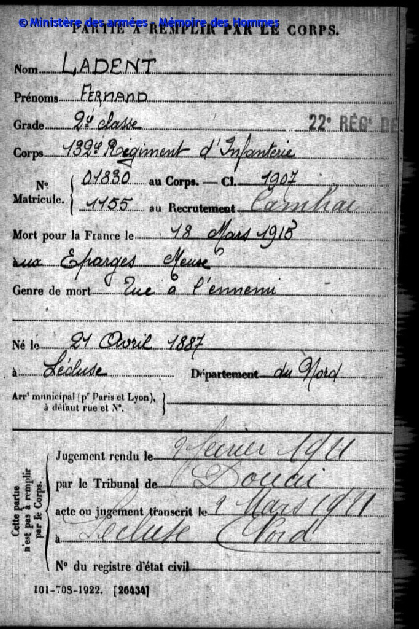 © Ministère des armées - Mémoire des Hommes
PARTIE À REMPLIR PAR LE CORPS.
Nom LADENT
Prénoms FERNAND
Grade 2e classe
22e RÉG DE
Corps 132e Regiment d'Infanterie
Nº Matricule. 01830 au Corps. — Cl. 1907
1155 au Recrutement Cambrai
Mort pour la France le 18 Mars 1915
aux Eparges Meuse
Genre de mort Tué à l'ennemi
Né le 21 Avril 1887
à Lécluse Département du Nord
Arrt municipal (pr Paris et Lyon), à défaut rue et Nº.
Cette partie n'est pas à remplir par le Corps.
Jugement rendu le 9 février 1921
par le Tribunal de Douai
acte ou jugement transcrit le 9 Mars 1921
à Lécluse Nord
Nº du registre d'état civil
101-708-1922. [26434]